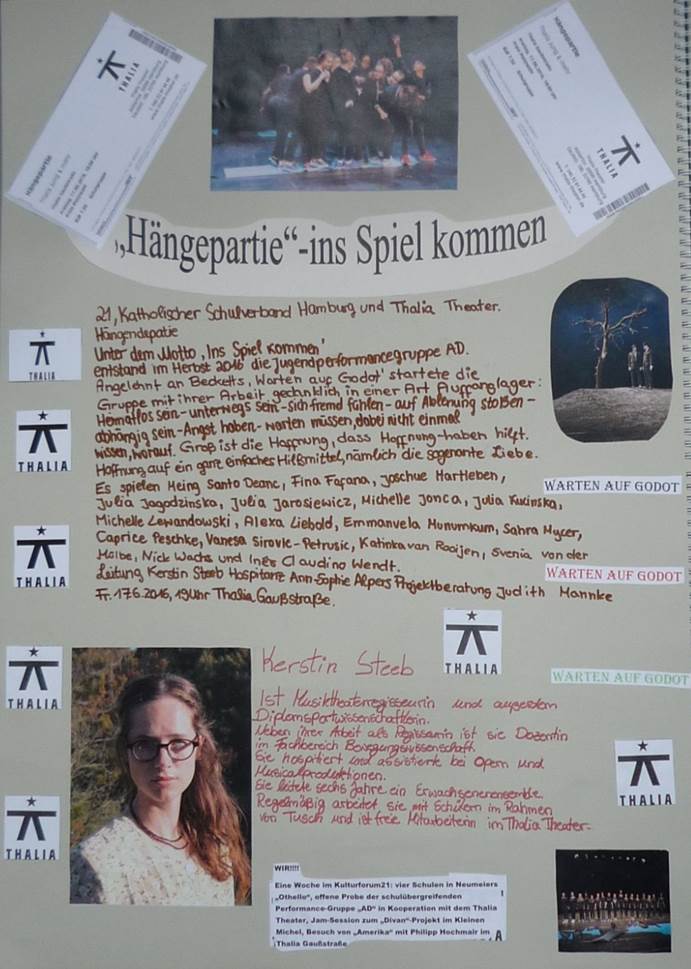 THALIA
THALIA
Hängepartie
„Hängepartie“-ins Spiel kommen
21, Katholischer Schulverband Hamburg und Thalia Theater.
Hängendepatie
Unter dem Motto ,Ins Spiel kommen'
entstand im Herbst 2016 die Jugendperformancegruppe AD.
Angelehnt an Becketts, Warten auf Godot' startete die
Gruppe mit ihrer Arbeit gedanklich in einer Art Auffanglager:
Heimatlos sein-unterwegs sein-sich fremd fühlen-auf Ablehnung stoßen-
abhängig sein-Angst haben-warten müssen, dabei nicht einmal
wissen, worauf. Groß ist die Hoffnung, dass Hoffnung-haben hilft.
Hoffnung auf ein ganz einfaches Hilfsmittel, nämlich die sogenante Liebe.
Es spielen Meing Santo Deanc, Fina Fafana, Joschue Hartleben,
Julia Jagodzinska, Julia Jarosiewicz, Michelle Jonca, Julia Kucinska,
Michelle Lewandowski, Alexa Liebold, Emmanuela Munumkum, Sahra Mycer,
Caprice Peschke, Vanesa Sirovic-Petrusic, Katinka van Rooijen, Svenia von der
Malbe, Nick Wachs und Inés Claudino Wendt.
Leitung Kerstin Steeb Hospitanz Ann-Sophie Alpers Projektberatung Judith Mannke
Fr. 17.6.2016, 19Uhr Thalia Gaußstraße.
THALIA
THALIA
THALIA
THALIA
THALIA
THALIA
THALIA
WARTEN AUF GODOT
WARTEN AUF GODOT
WARTEN AUF GODOT
Kerstin Steeb
Ist Musiktheaterregisseurin und außerdem
Diplomsportwissenschaftlerin.
Neben ihrer Arbeit als Regisseurin ist sie Dozentin
im Fachbereich Bewegungswissenschaft.
Sie hospitiert und assistierte bei Opern und
Musicalproduktionen.
Sie leitete sechs Jahre ein Erwachsenenensemble.
Regelmäßig arbeitet sie mit Schülern im Rahmen
von Tusch und ist freie Mitarbeiterin im Thalia Theater.
WIR!!!!
Eine Woche im Kulturforum21: vier Schulen in Neumeiers
„Othello“, offene Probe der schulübergreifenden
Performance-Gruppe „AD“ in Kooperation mit dem Thalia
Theater, Jam-Session zum „Divan“-Projekt im Kleinen
Michel, Besuch von "Amerika" mit Philipp Hochmair im
Thalia Gaußstraße